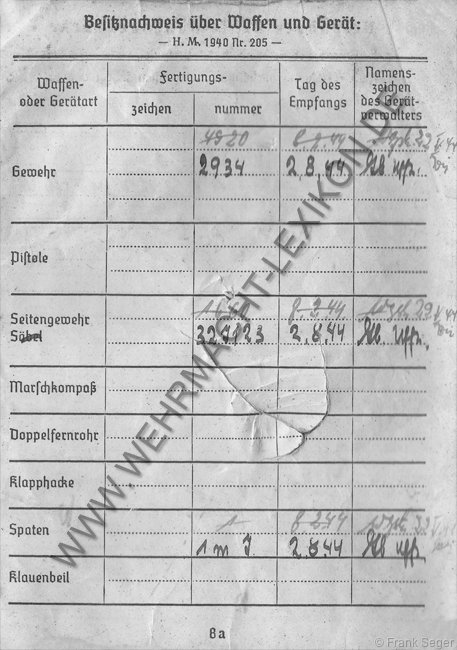 Besitznachweis über Waffen und Gerät:
— H. M. 1940 Nr. 205 —
Waffen- oder Gerätart
Fertigungs-
zeichen
nummer
Tag des Empfangs
Namens-zeichen des Gerät-verwalters
4920
Gewehr
2934
2.8.44
Uffz.
Pistole
Seitengewehr
Säbel
2.8.44
Uffz.
Marschkompaß
Doppelfernrohr
Klapphacke
Spaten
1
1 m J.
2.8.44
Uffz.
Klauenbeil
8a
WWW.WEHRMACHT-LEXIKON.DE
© Frank Seger